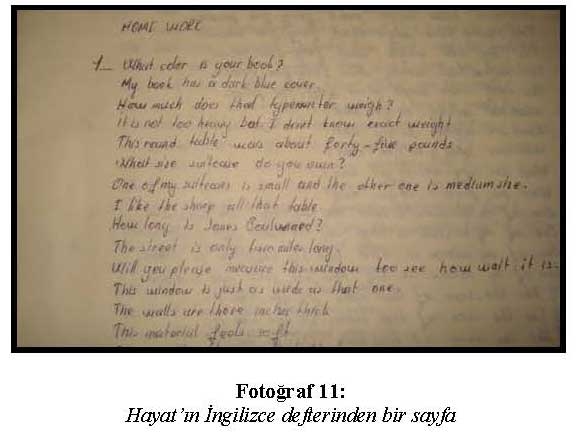 HOME WORK
1_ What color is your book?
My book has a dark blue cover.
How much does that typewriter weigh?
It is not too heavy but I don't know exact weight
This round table was about forty-five pounds
What size suitcase do you own?
One of my suitcases is small and the other one is medium size.
I like the sharp all that table.
How long is Jones Boulward?
The street is only two miles long.
Will you please measure this window too see how wait it is.
This window is just as wide as that one.
The walls are three inches thick
This material feels soft
Fotoğraf 11:
Hayat'ın İngilizce defterinden bir sayfa